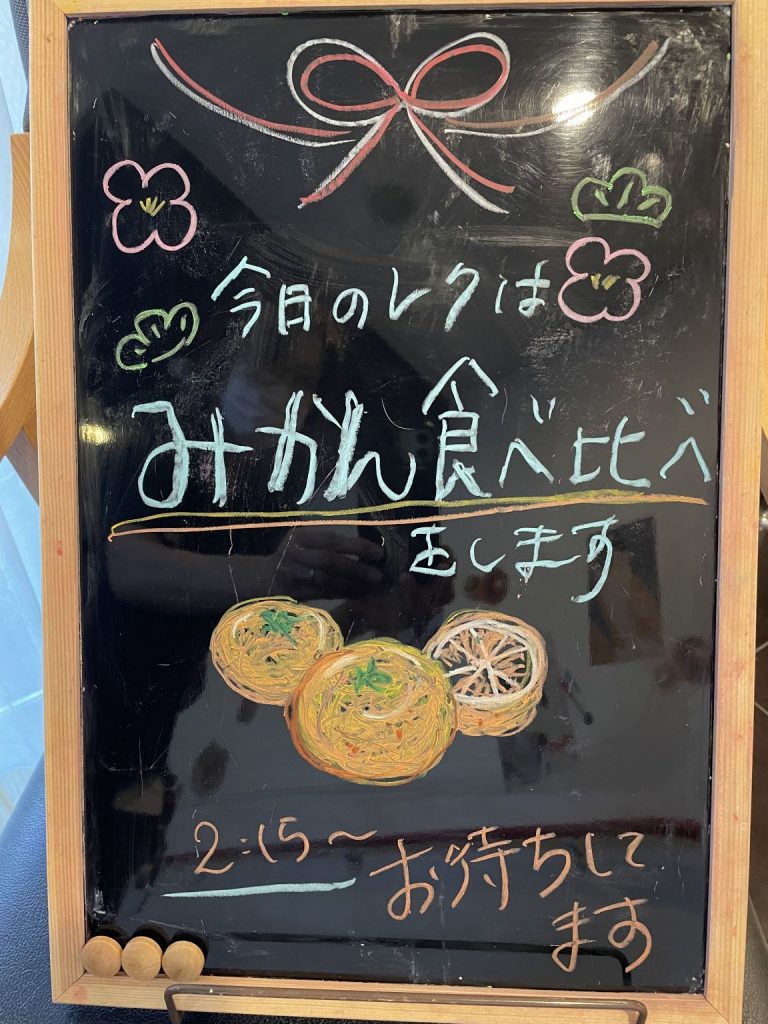 今日のレクは
みかん食べ比べ
をします
2:15～
お待ちして
ます